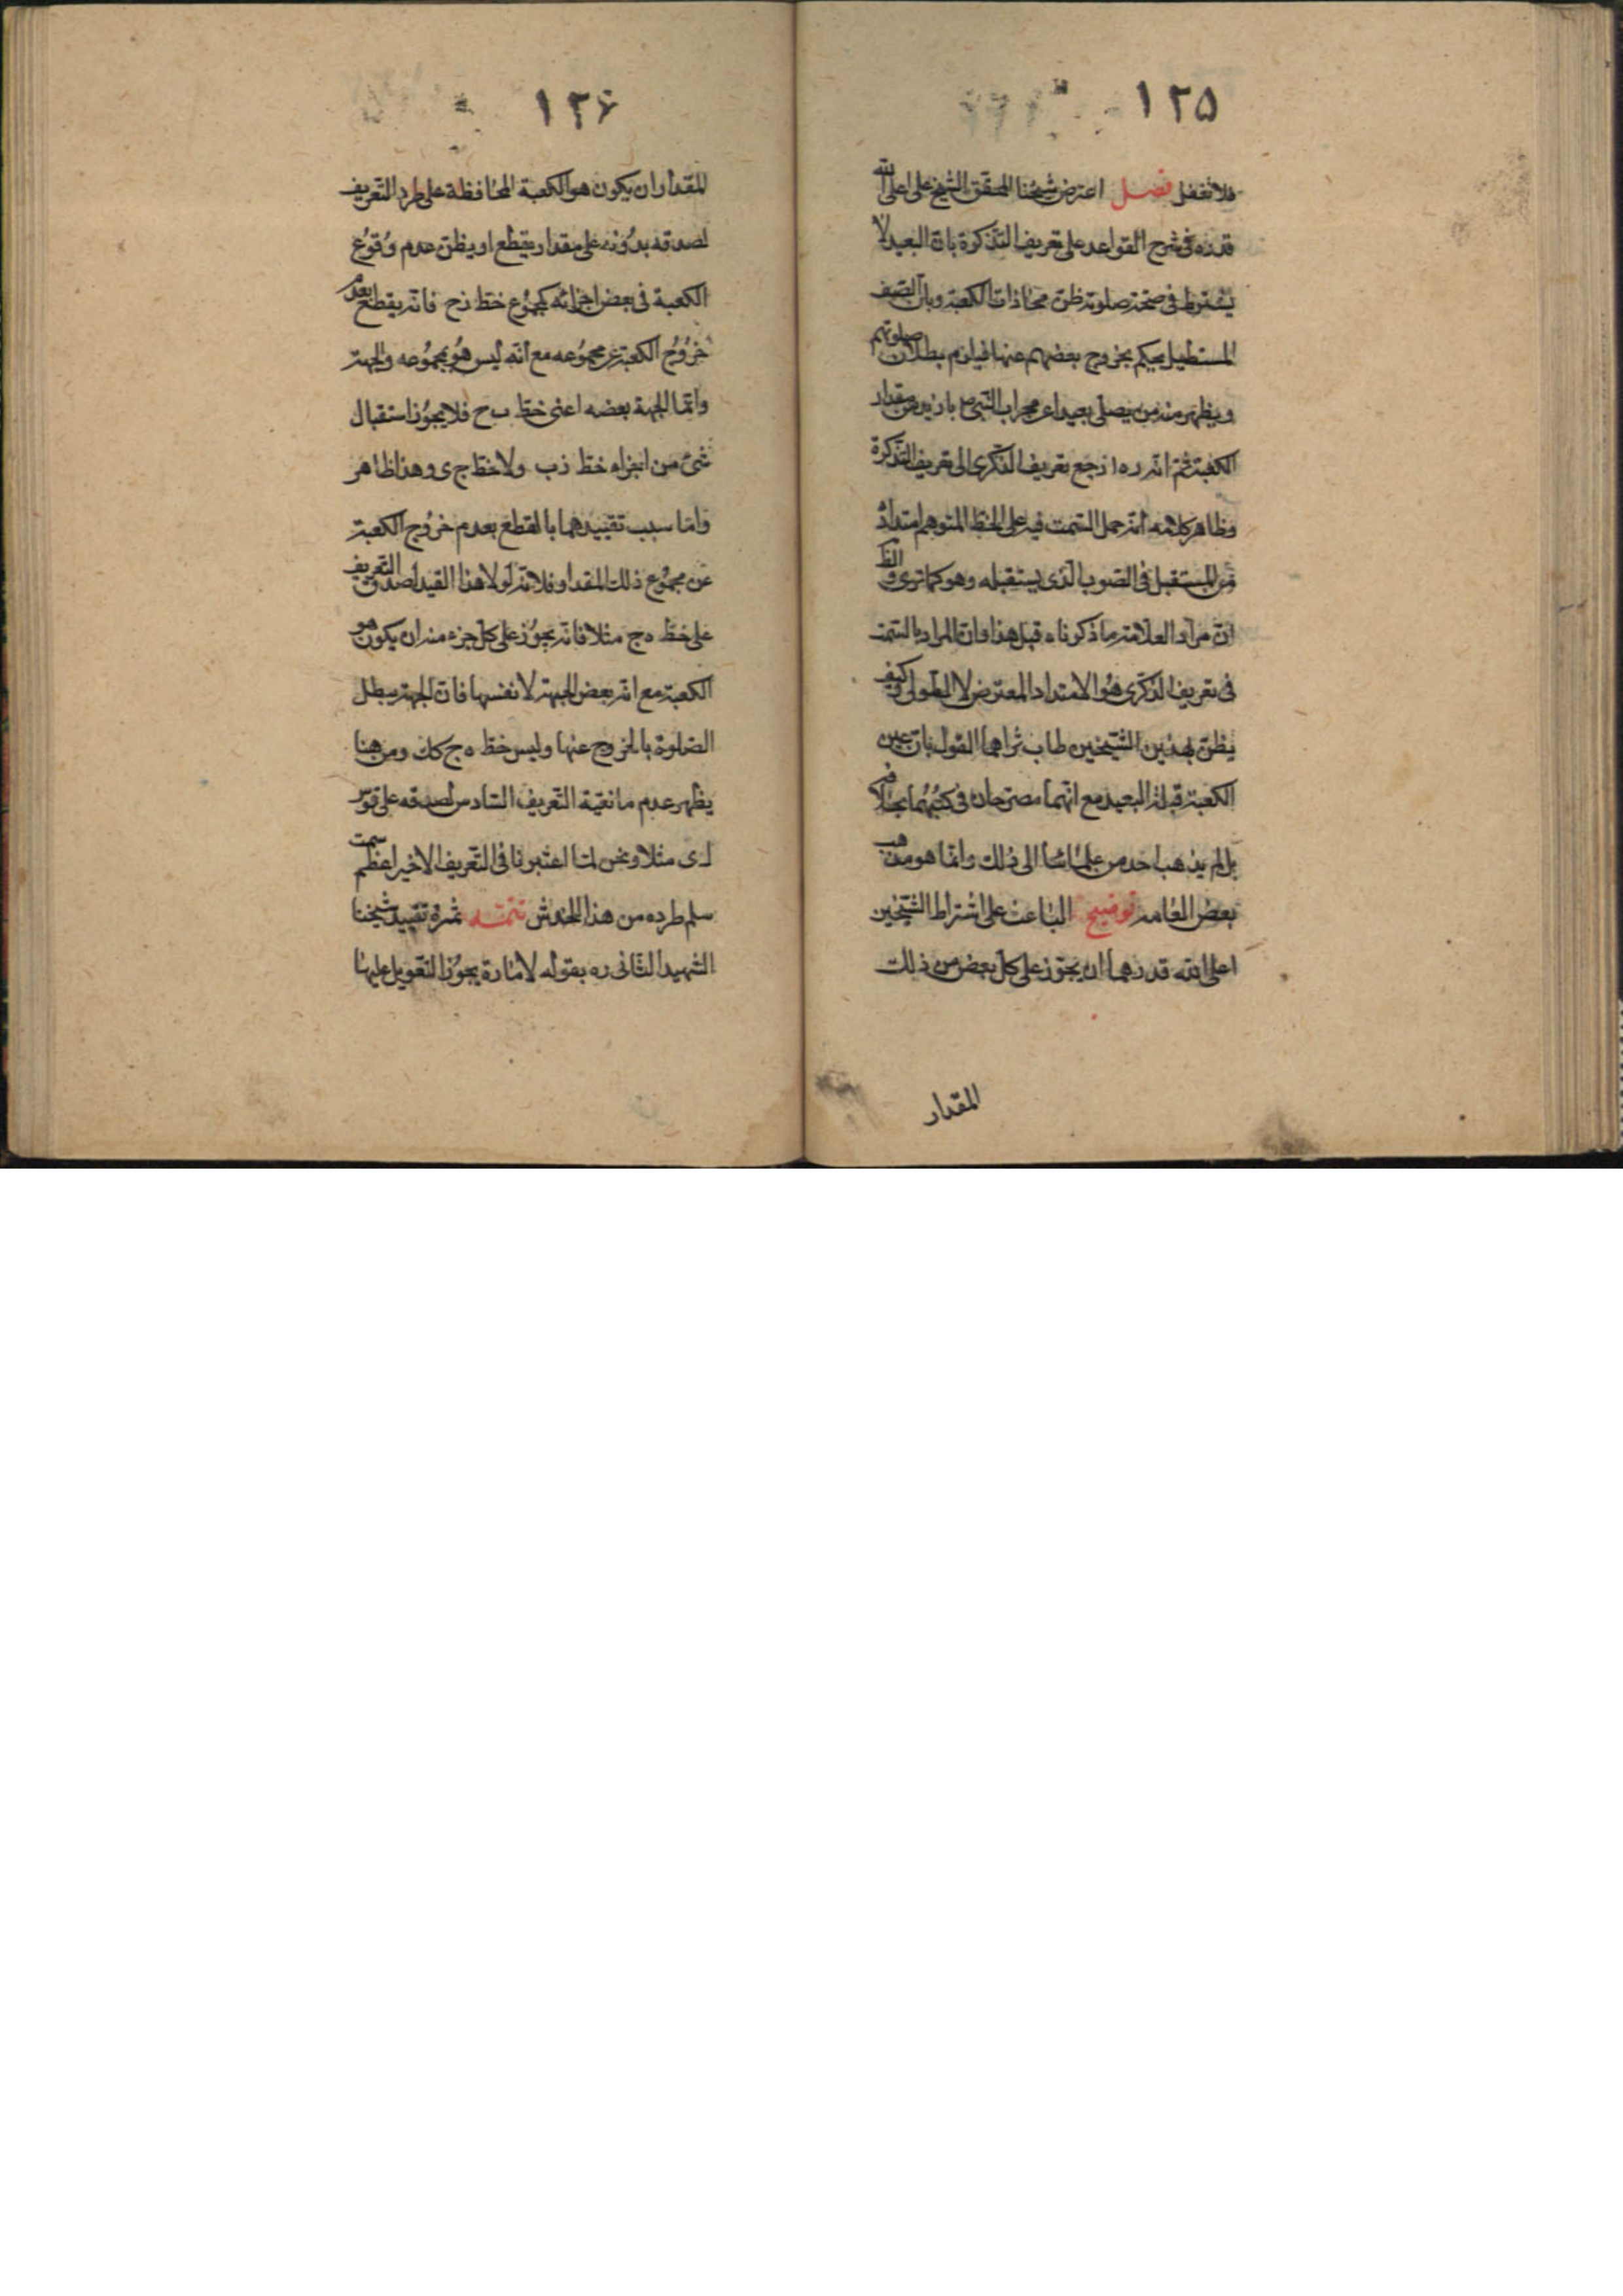 ١٢۵
فلا تغفل فصل اعترض شيخنا المحقق الشيخ على اعلى الله
قدره فى شرح القواعد على تعريف التذكرة بان البعيد لا
يشترط فى صحة صلوته ظن محاذات الكعبة وبان الصف
المستطيل يحكم بخروج بعضهم عنها فيلزم بطلان صلوتهم
ويظهر منه من يصلى بعيدا عن محراب النبى ص بازيد من مقدار
الكعبة ثم انه ره ارجع تعريف الذكرى الى تعريف التذكرة
وظاهر كلامه انه حمل السمت فيه على الخط المتوهم امتداده
من المستقبل فى الصوب الذى يستقبله وهو كما ترى والظ
ان مراد العلامة ما ذكرناه قبل هذا وان المراد بالسمت
فى تعريف الذكرى هو الامتداد المعترض لا الطولى وكيف
يظن بهذين الشيخين طاب ثراهما القول بان عين
الكعبة قبلة البعيد مع انهما مصرحان فى كتبهما بخلافه
بل لم يذهب احد من علمائنا الى ذلك وانما هو مذهب
بعض العامه توضيح الباعث على اشتراط الشيخين
اعلى الله قدرهما ان يجوز على كل بعض من ذلك
المقدار
١٢۶
المقدار ان يكون هو الكعبة المحافظة على طرد التعريف
لصدقه بدونه على مقدار يقطع او يظن عدم وقوع
الكعبة فى بعض اجزائه كمجموع خط زح فانه يقطع بعدم
خروج الكعبة عن مجموعه مع انه ليس هو بمجموعه والجهة
وانما الجهة بعضه اعنى خط ب ح فلا يجوز استقبال
شئ من اجزاء خط زب ولا خط ج ى وهذا ظاهر
واما سبب تقييدهما بالقطع بعدم خروج الكعبة
عن مجموع ذلك المقدار فلانه لولا هذا القيد لصدق التعريف
على خط ه ج مثلا فانه يجوز على كل جزء منه ان يكون هو
الكعبة مع انه بعض الجهة لا نفسها فان الجهة يبطل
الصلوة بالخروج عنها وليس خط ه ج كك ومن هنا
يظهر عدم مانعية التعريف السادس لصدقه على قوس
ل ى مثلا ونحن لما اعتبرنا فى التعريف الاخير اعظم سمت
سلم طرده من هذا الخدش تتمـه ثمرة تقييد شيخنا
الشهيد الثانى ره بقوله لامارة يجوز التعويل عليها